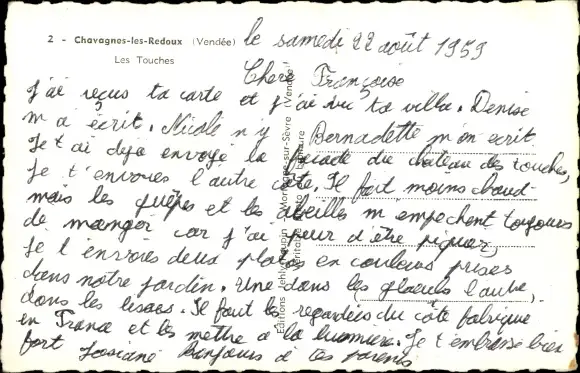 2 - Chavagnes-les-Redoux (Vendée)
Les Touches
le samedi 22 août 1959
Chère Françoise
J'ai reçus ta carte et j'ai vu ta villa. Denise
m'a écrit. Nicole n'y Bernadette m'on ecrit
Je t'ai déja envoyé la façade du château des touches,
Je t'envoies l'autre côté. Il fait moins chaud
mais les guêpes et les abeilles m'empêchent toujours
de manger car j'ai peur d'être piquer,
Je l'envoies deux photos en couleurs prises
dans notre jardin. Une dans les glaïeuls l'autre,
dans les lisacs. Il faut les regardées du côté fabrique
en France et les mettre a la lummière. Je t'embrasse bien
fort Josiane Bonjours à tes parents
Editions Jehly-Poupin Mortagne-sur-Sèvre (Vendée)